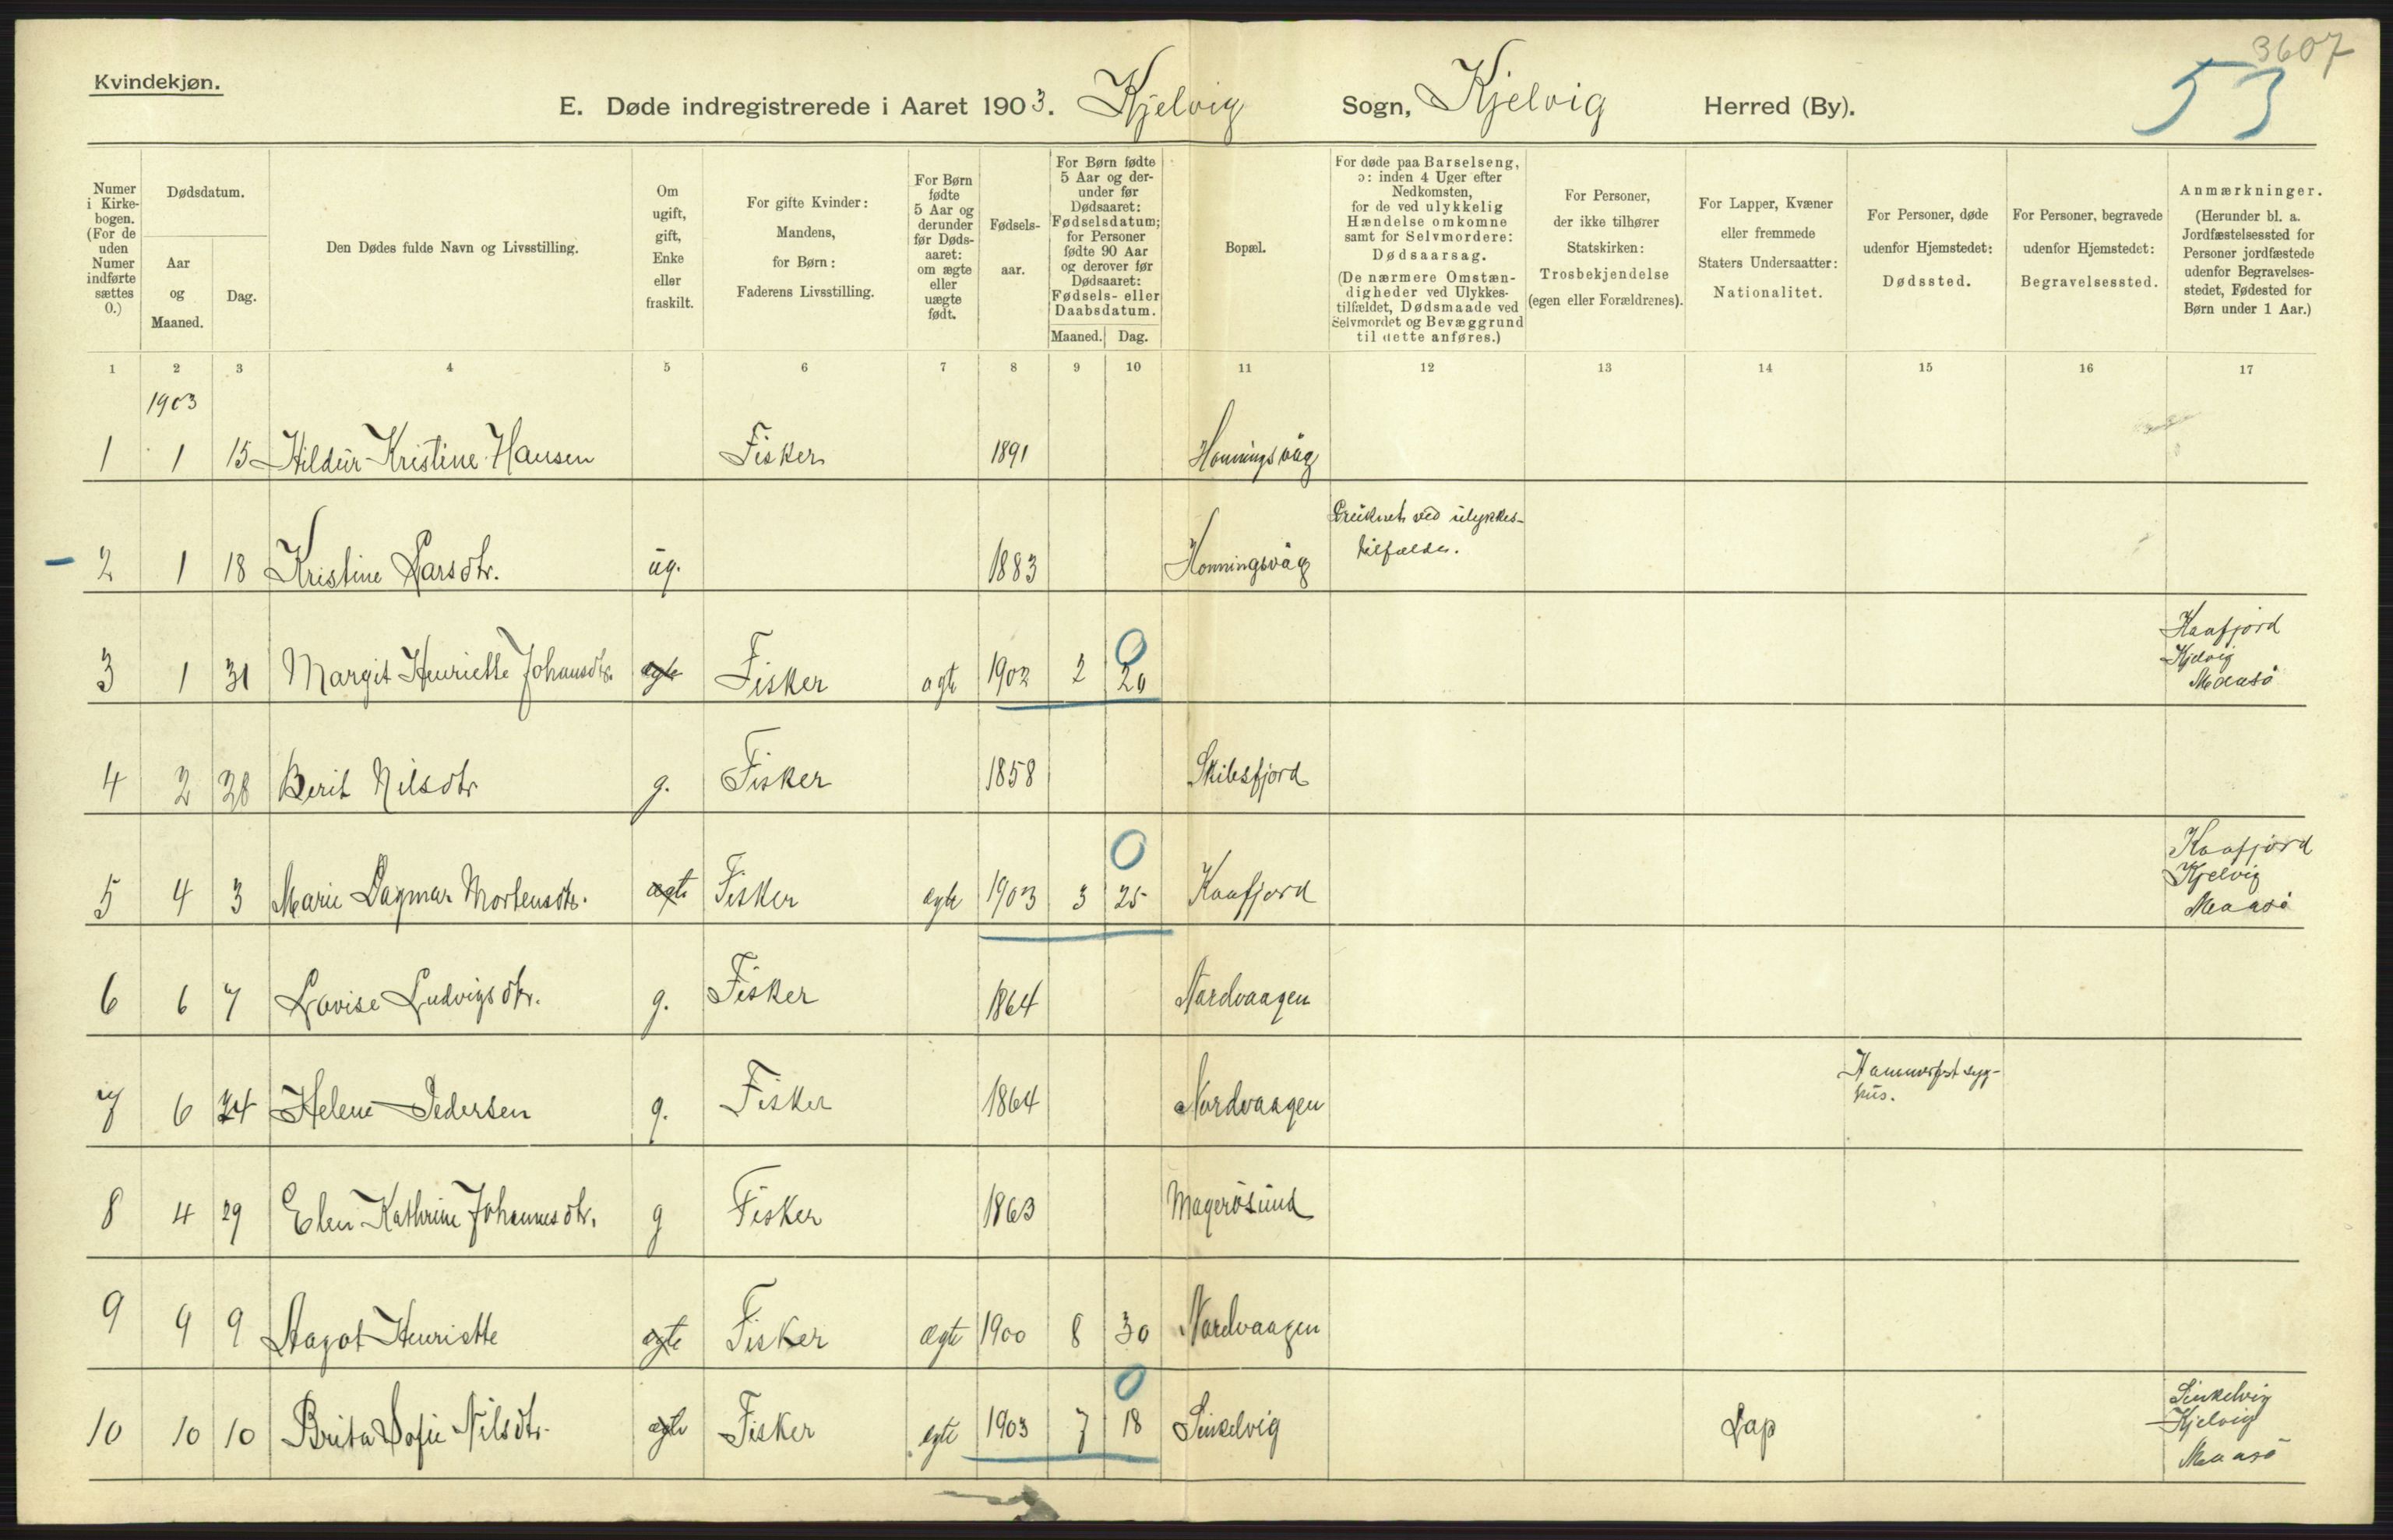 3607
53
Kvindekjøn.
E. Døde indregistrerede i Aaret 1903. Kjelvig Sogn, Kjelvig Herred (By).
Numer i Kirke-bogen. (For de uden Numer indførte sættes 0.)
Dødsdatum.
Aar og Maaned.
Dag.
Den Dødes fulde Navn og Livsstilling.
Om ugift, gift, Enke eller fraskilt.
For gifte Kvinder: Mandens, for Børn: Faderens Livsstilling.
For Børn fødte 5 Aar og derunder før Døds-aaret: om ægte eller uægte født.
Fødsels-aar.
For Børn fødte 5 Aar og der-under før Dødsaaret: Fødselsdatum; for Personer fødte 90 Aar og derover før Dødsaaret: Fødsels- eller Daabsdatum.
Maaned. Dag.
Bopæl.
For døde paa Barselseng, ɔ: inden 4 Uger efter Nedkomsten, for de ved ulykkelig Hændelse omkomne samt for Selvmordere: Dødsaarsag. (De nærmere Omstæn-digheder ved Ulykkes-tilfældet, Dødsmaade ved Selvmordet og Bevæggrund til dette anføres.)
For Personer, der ikke tilhører Statskirken: Trosbekjendelse (egen eller Forældrenes).
For Lapper, Kvæner eller fremmede Staters Undersaatter: Nationalitet.
For Personer, døde udenfor Hjemstedet: Dødssted.
For Personer, begravede udenfor Hjemstedet: Begravelsessted.
Anmærkninger. (Herunder bl. a. Jordfæstelsessted for Personer jordfæstede udenfor Begravelses-stedet, Fødested for Børn under 1 Aar.)
1 2 3 4 5 6 7 8 9 10 11 12 13 14 15 16 17
1903
1 1 15 Hildur Kristine Hansen Fisker 1891 Honningsvåg
2 1 18 Kristine Larsdtr. ug. 1883 Honningsvåg Druknet ved ulykkes-
tilfælde.
3 1 31 Margit Henriette Johansdtr. ægte Fisker ægte 1902 2 20 0 Kaafjord
Kjelvig
Maasø
4 2 28 Berit Nilsdtr g. Fisker 1858 Skibsfjord
5 4 3 Marie Dagmar Mortensdtr. ægte Fisker ægte 1903 3 25 0 Kaafjord Kaafjord
Kjelvig
Maasø
6 6 7 Lovise Ludvigsdtr. g. Fisker 1864 Nordvaagen
7 6 24 Helene Pedersen g. Fisker 1864 Nordvaagen Hammerfest syg-
hus.
8 4 29 Elen Kathrine Johannesdtr. g Fisker 1863 Magerösund
9 9 9 Aagot Henriette ægte Fisker ægte 1900 8 30 Nordvaagen
10 10 10 Brita Sofie Nilsdtr. ægte Fisker ægte 1903 7 18 0 Lap
Kjelvig
Maasø